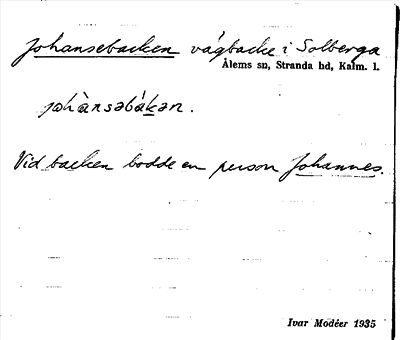 Johansebacken vägbacke i Solberga
Ålems sn, Stranda hd, Kalm. l.
johànsəbákən.
Vid backen bodde en person Johannes.
Ivar Modéer 1935